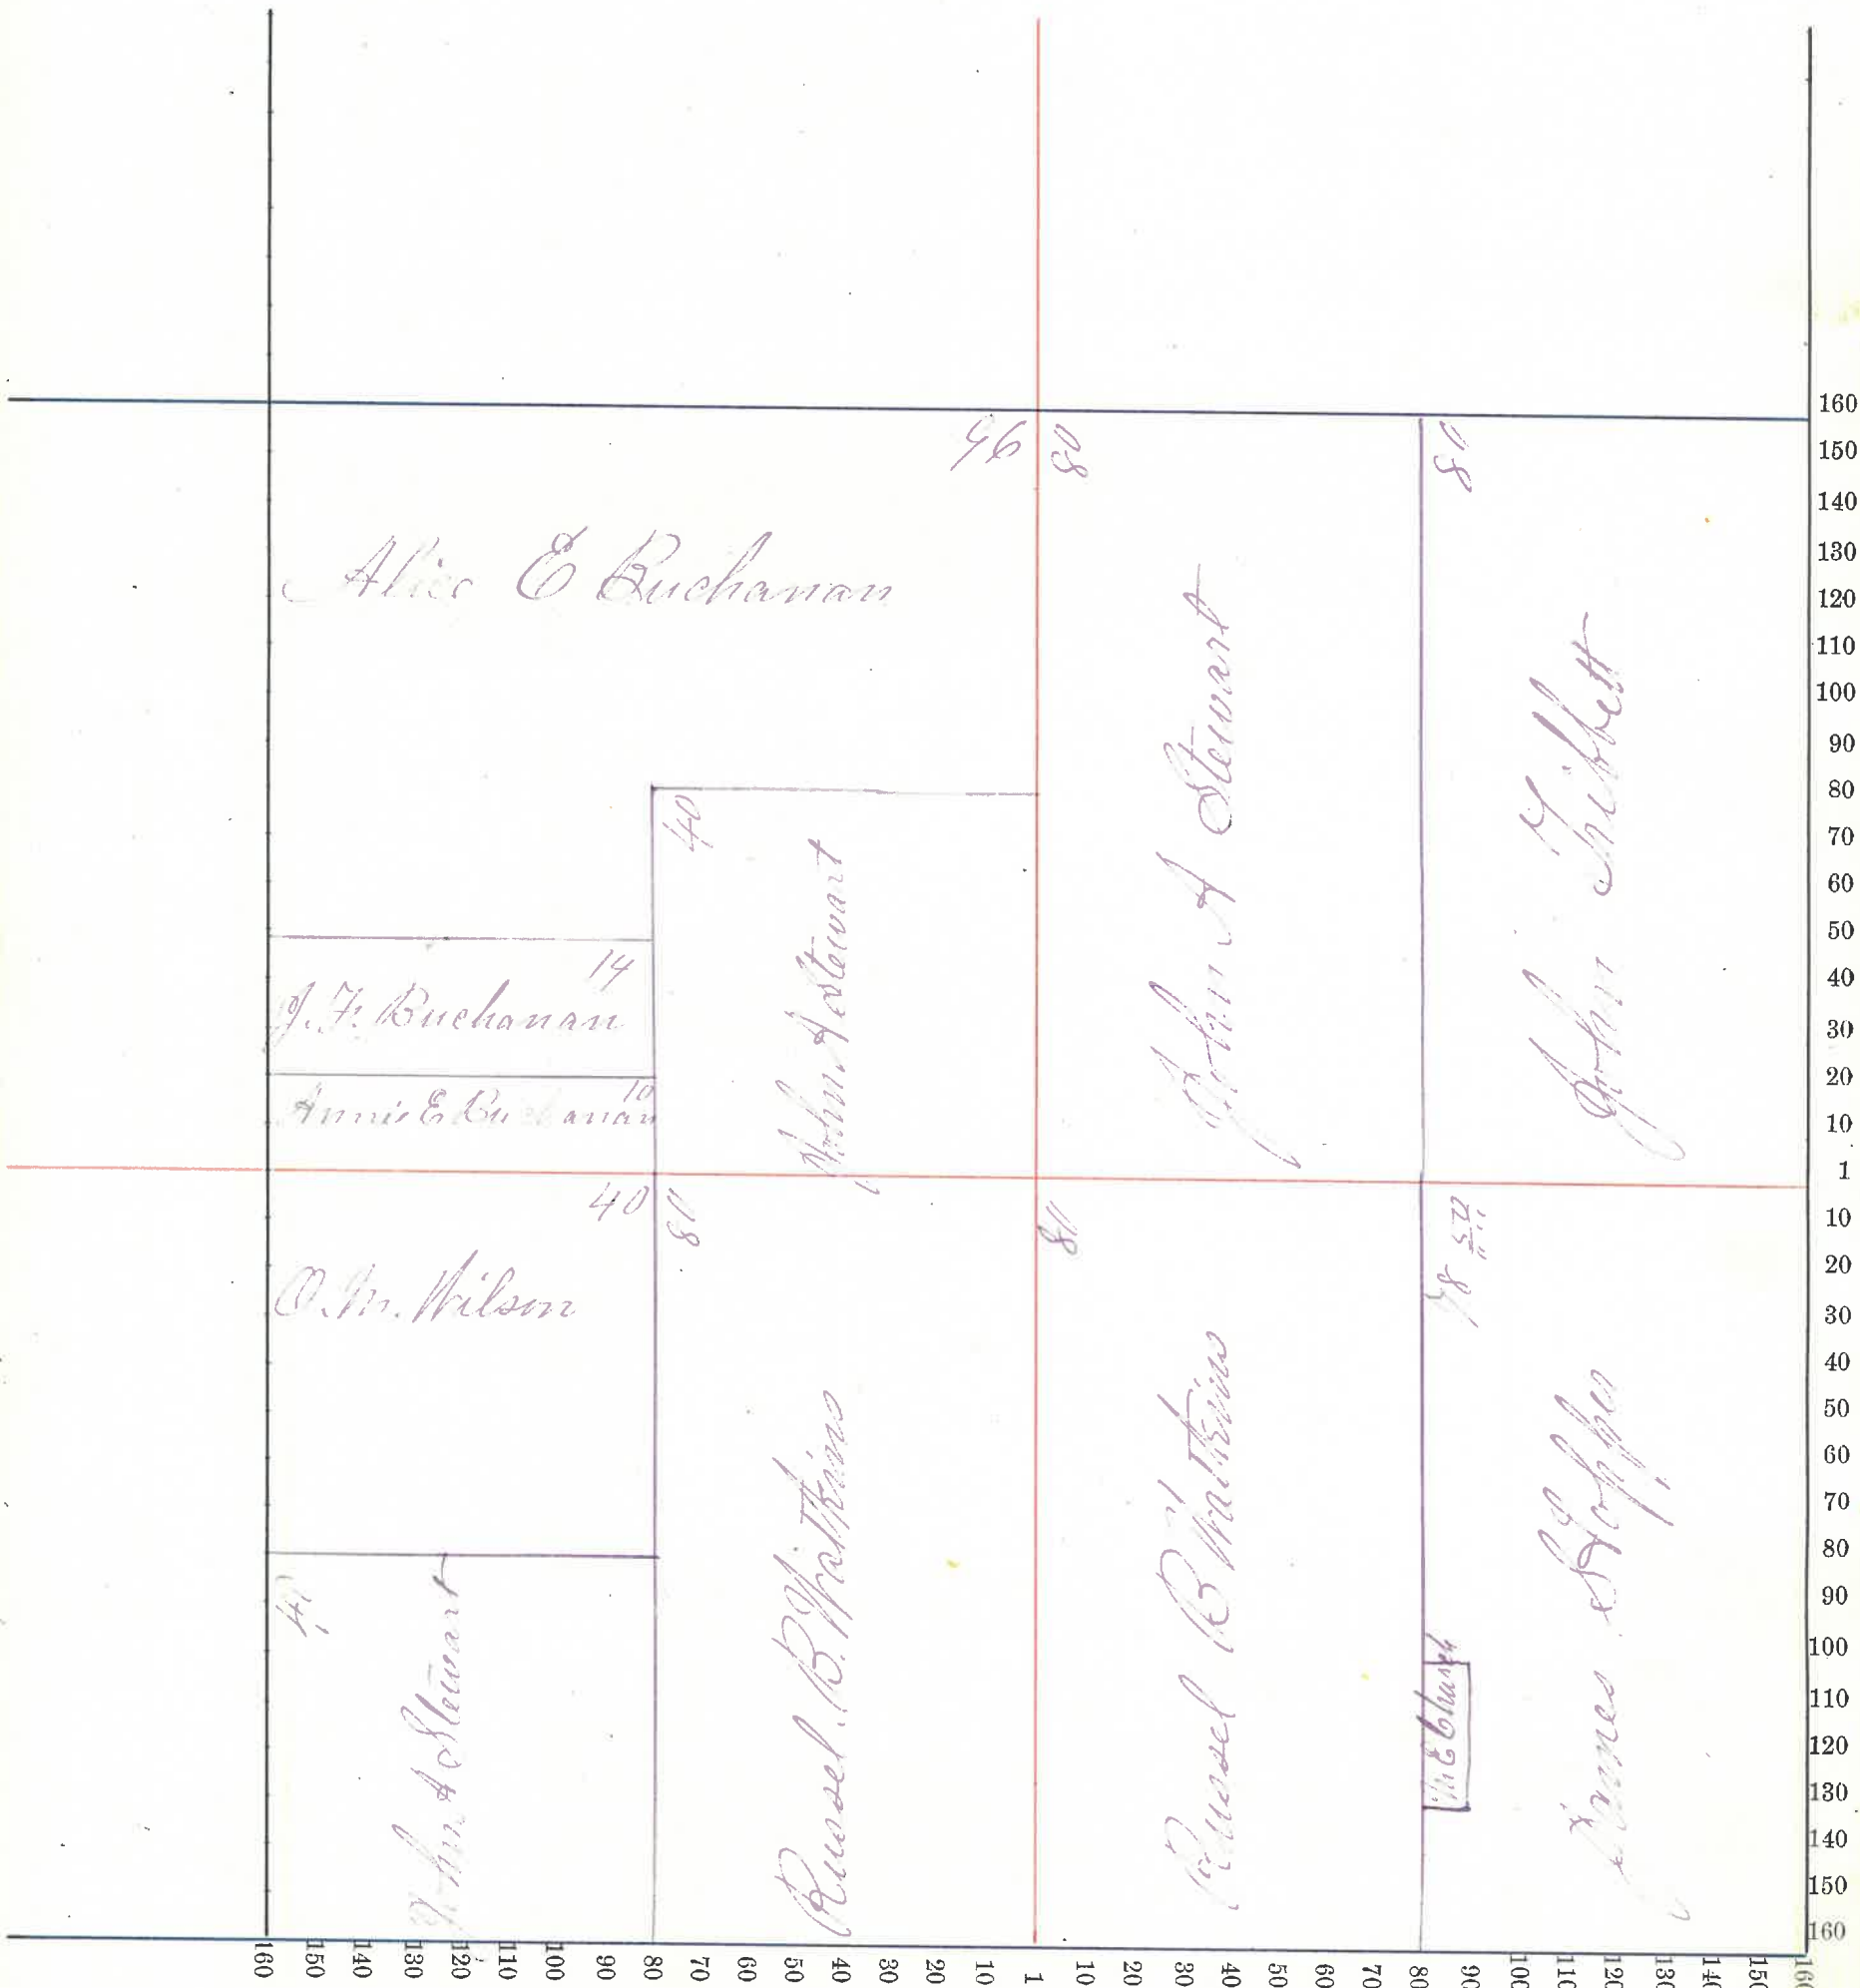 96
80
80
Alice E Buchanan
John A Stewart
John Tribbett
40
John A Stewart
14
J. F. Buchanan
10
Annie E Bu anan
40
O. M. Wilson
80
Russel B. Watkins
80
Russel B Watkins
78
James
M E Church
40
John A Stewart
160
150
140
130
120
110
100
90
80
70
60
50
40
30
20
10
1
10
20
30
40
50
60
70
80
90
100
110
120
130
140
150
160
160
150
140
130
120
110
100
90
80
70
60
50
40
30
20
10
1
10
20
30
40
50
60
70
80
90
100
110
120
130
140
150
160